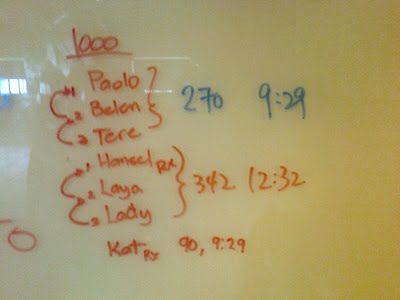 1000
1 Paolo
2 Belen 270 9:29
3 Tere
1 Hansel Rx
2 Laya 342 12:32
3 Lady
Kat Rx 90, 9:29